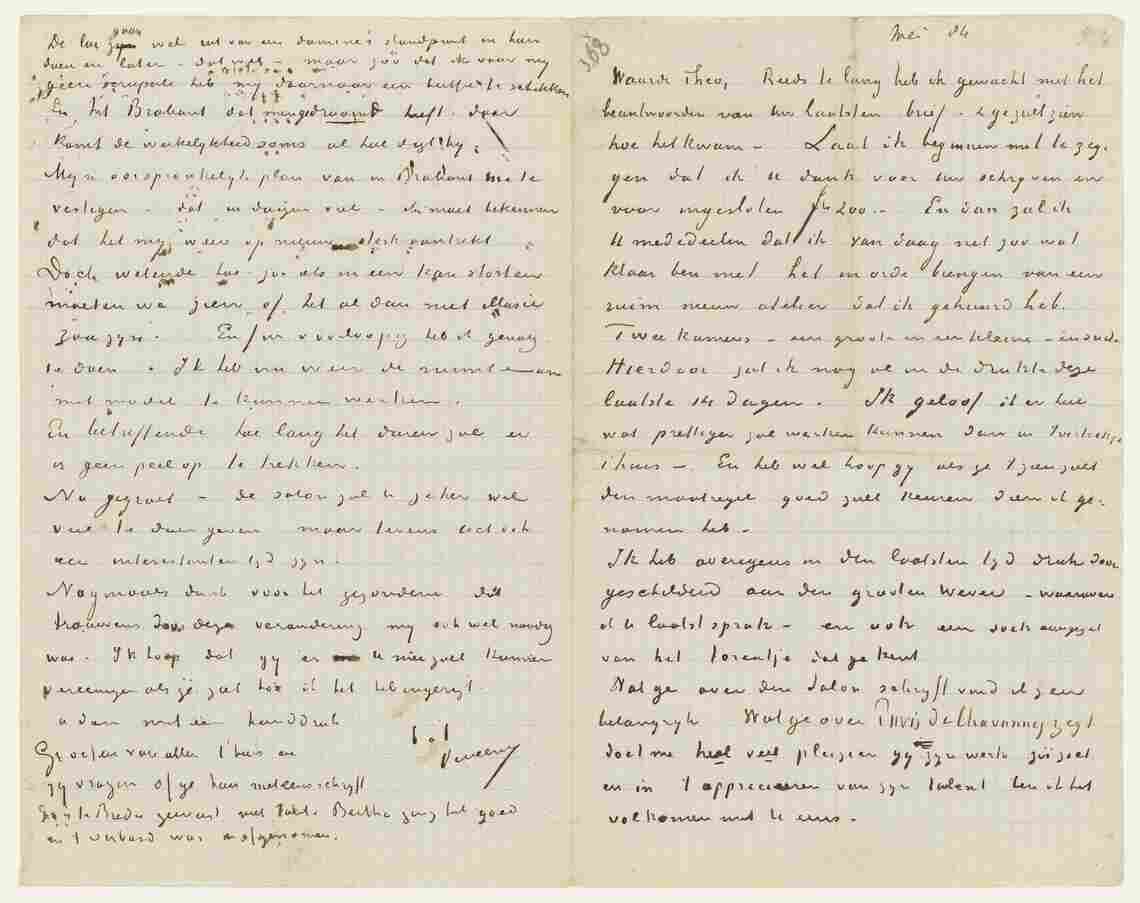 voor
De loe zyn wel eut van een dominé's standpunt en hun
doen en laten - dat wel - maar zóó dat ik voor my
geen scrupule heb my daarnaar een halfje te schikken
En in 't Brabant dat men gedroomd heeft daar
komt de werkelykheid soms al heel digt by.
Myn oorspronkelyke plan van in Brabant me te
vestigen - dat in duigen viel - ik moet bekennen
dat het my weer op nieuw sterk aantrekt
Doch wetende hoe zoo iets in een kan storten
moeten we zien of het al dan niet illusie
zou zyn. Enfin voorloopig heb ik genoeg
te doen. Ik heb nu weer de ruimte om
met model te kunnen werken.
En betreffende hoe lang het duren zal er
is geen peil op te trekken.
Nu gegroet - de salon zal U zeker wel
veel te doen geven maar tevens ook
een interessanten tyd zyn.
Nogmaals dank voor het gezondene dat
trouwens door deze verandering my ook wel noodig
was. Ik hoop dat gy er U mee zult kunnen
vereenigen als ge ziet hoe ik het heb ingerigt.
adieu met een handdruk
t. à t.
Vincent
Groeten van allen t'huis en
zy vragen of ge hun meteen schryft
Zy is te Breda geweest met Tante Bertha ging het goed
en 't verband was er afgenomen.
368
Mei 84
Waarde Theo, Reeds te lang heb ik gewacht met het
beantwoorden van Uw laatsten brief - & ge zult zien
hoe het kwam - Laat ik beginnen met te zeg-
gen dat ik U dank voor Uw schryven en
voor ingesloten fr 200.- En dan zal ik
U mededeelen dat ik van daag net zoo wat
klaar ben met het in orde brengen van een
ruim nieuw atelier dat ik gehuurd heb.
Twee kamers - een groote en een kleine - en suite
Hierdoor zat ik nog al in de drukte deze
laatste 14 dagen. Ik geloof ik er heel
wat prettiger zal werken kunnen dan in 't vertrekje
t'huis -. En heb wel hoop gy als ge 't zien zult
den maatregel goed zult keuren dien ik ge-
nomen heb -
Ik heb overigens in den laatsten tyd druk door
geschilderd aan den grooten wever - waarover
ik U laatst sprak - en ook een doek aangezet
van het torentje dat ge kent
Wat ge over den Salon schryft vind ik zeer
belangryk Wat ge over Puvis de Chavannes zegt
doet me heel veel pleizier gy zyn werk zóó ziet
en in 't apprecieeren van zyn talent ben ik het
volkomen met U eens.-